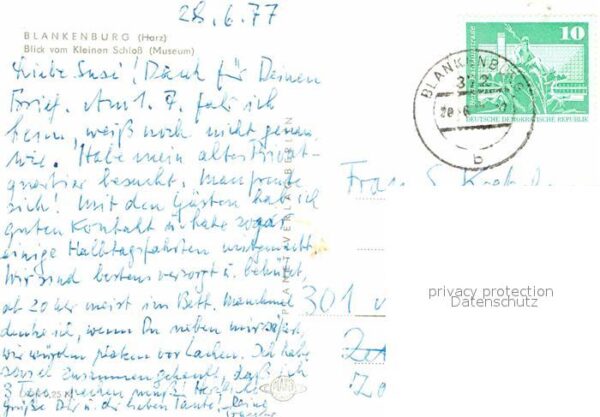 28.6.77
BLANKENBURG (Harz)
Blick vom Kleinen Schloß (Museum)
Liebe Susi! Dank für Deinen
Brief. Am 1. 7. fahr ich
heim, weiß noch nicht genau,
wie. Habe mein altes Privat-
quartier besucht, man freute
sich! Mit den Gästen hab ich
guten Kontakt u. habe sogar
einige Halbtagsfahrten mitgemacht.
Wir sind bestens versorgt u. behütet,
ab 20 Uhr meist im Bett. Manchmal
denke ich, wenn Du neben mir säßest,
wir würden platzen vor Lachen. Ich habe
soviel zusammen, daß ich
3 Tage müßt! Herzliche
Grüße Dir u. der lieben Tante! Deine
10
DEUTSCHE DEMOKRATISCHE REPUBLIK
BLANKENBURG
372
b
PLANET-VERLAG BERLIN
Frau S.
301
privacy protection
Datenschutz
PLANET